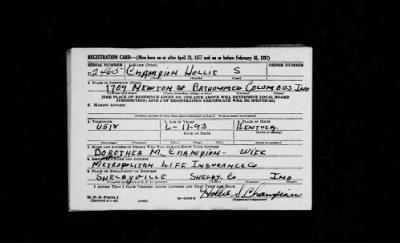 REGISTRATION CARD—(Men born on or after April 28, 1877 and on or before February 16, 1897)
SERIAL NUMBER 1. NAME (Print) ORDER NUMBER
U 2465 CHAMPION HOLLIE S
2. PLACE OF RESIDENCE (Print)
1709 NEWTON BARTHOLOMEW COLUMBUS IND
[THE PLACE OF RESIDENCE GIVEN ON THE LINE ABOVE WILL DETERMINE LOCAL BOARD
JURISDICTION; LINE 2 OF REGISTRATION CERTIFICATE WILL BE IDENTICAL]
3. MAILING ADDRESS
4. TELEPHONE 5. AGE IN YEARS 6. PLACE OF BIRTH
6-11-93
DATE OF BIRTH
7. NAME AND ADDRESS OF PERSON WHO WILL ALWAYS KNOW YOUR ADDRESS
M. CHAMPION - WIFE
8. EMPLOYER'S NAME AND ADDRESS
METROPOLITAN LIFE INSURANCE CO
9. PLACE OF EMPLOYMENT OR BUSINESS
SHELBYVILLE SHELBY CO IND
I AFFIRM THAT I HAVE VERIFIED ABOVE ANSWERS AND THAT THEY ARE TRUE.
D. S. S. Form 1
Hollie S. Champion